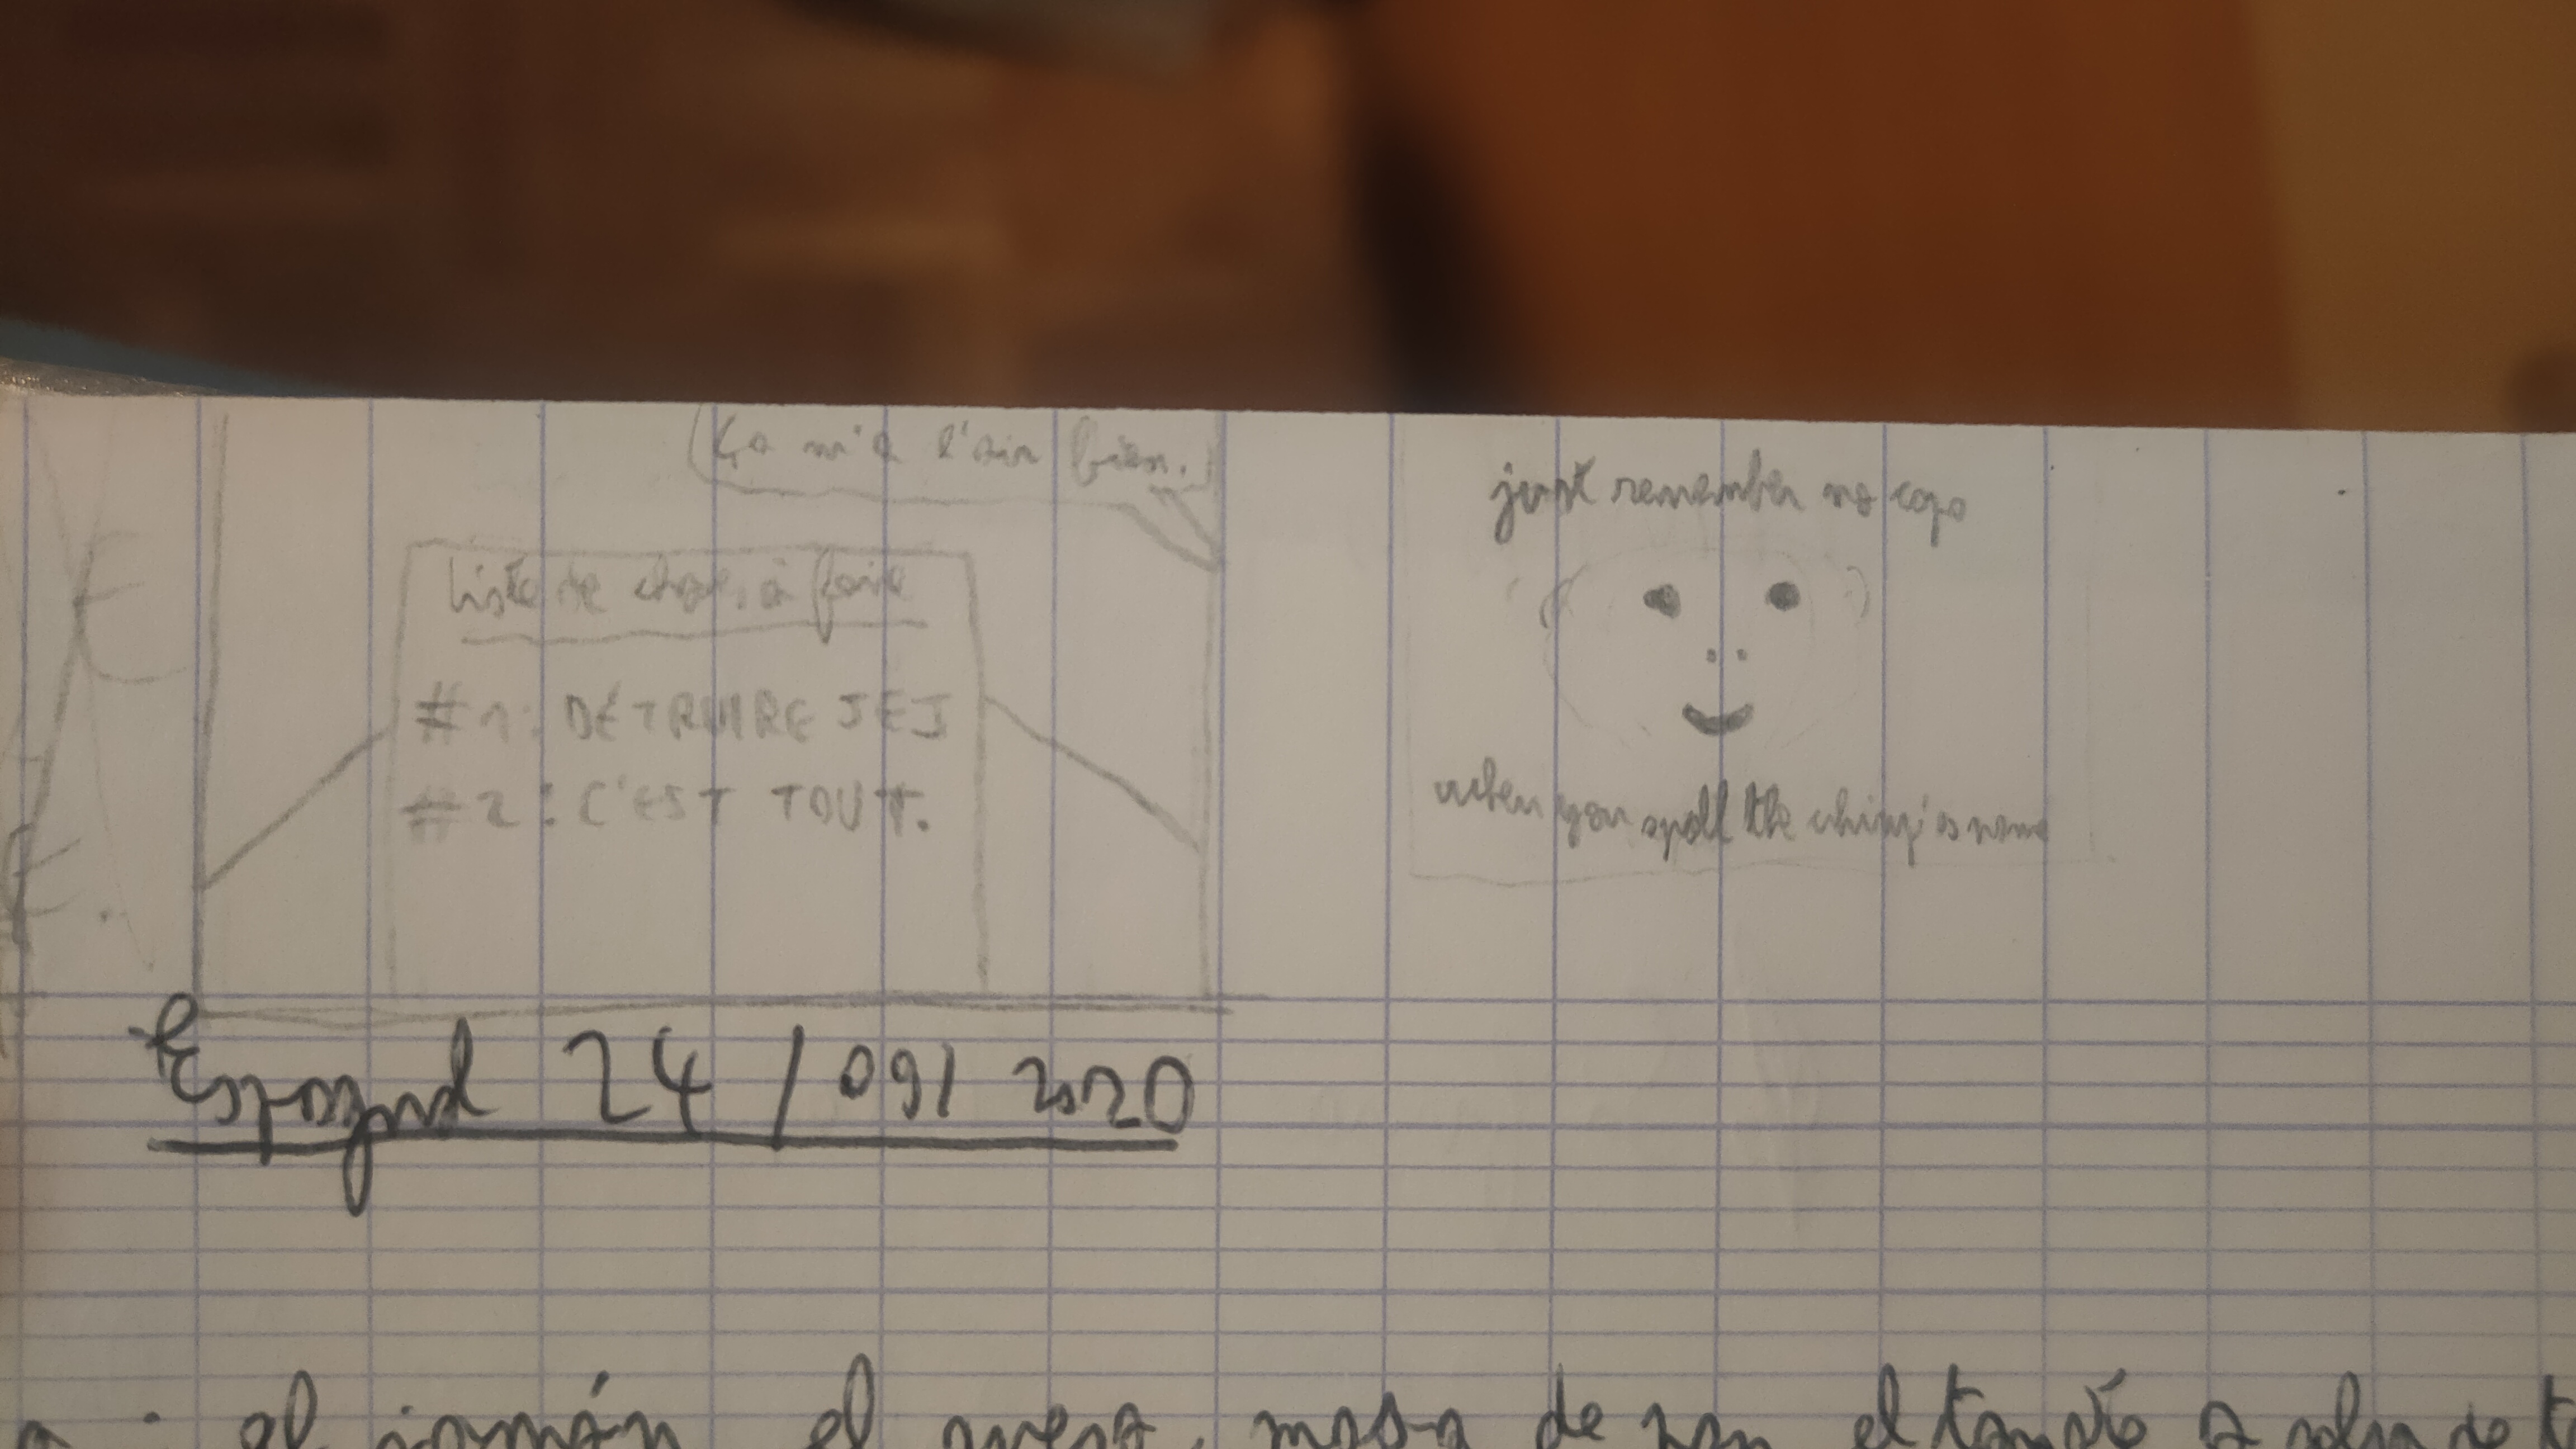 ça m'a l'air bien.
liste de choses à faire
#1: DÉTRUIRE JEJ
#2: C'EST TOUT.
just remember no caps
when you spell the chimp's name
Espagnol 24/09/2020
el jamón el queso, masa de pan el tomate